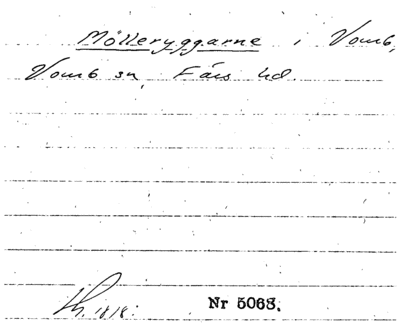 Mölleryggarne i Vomb,
Vomb sn, Färs hd.
Nr 5068.